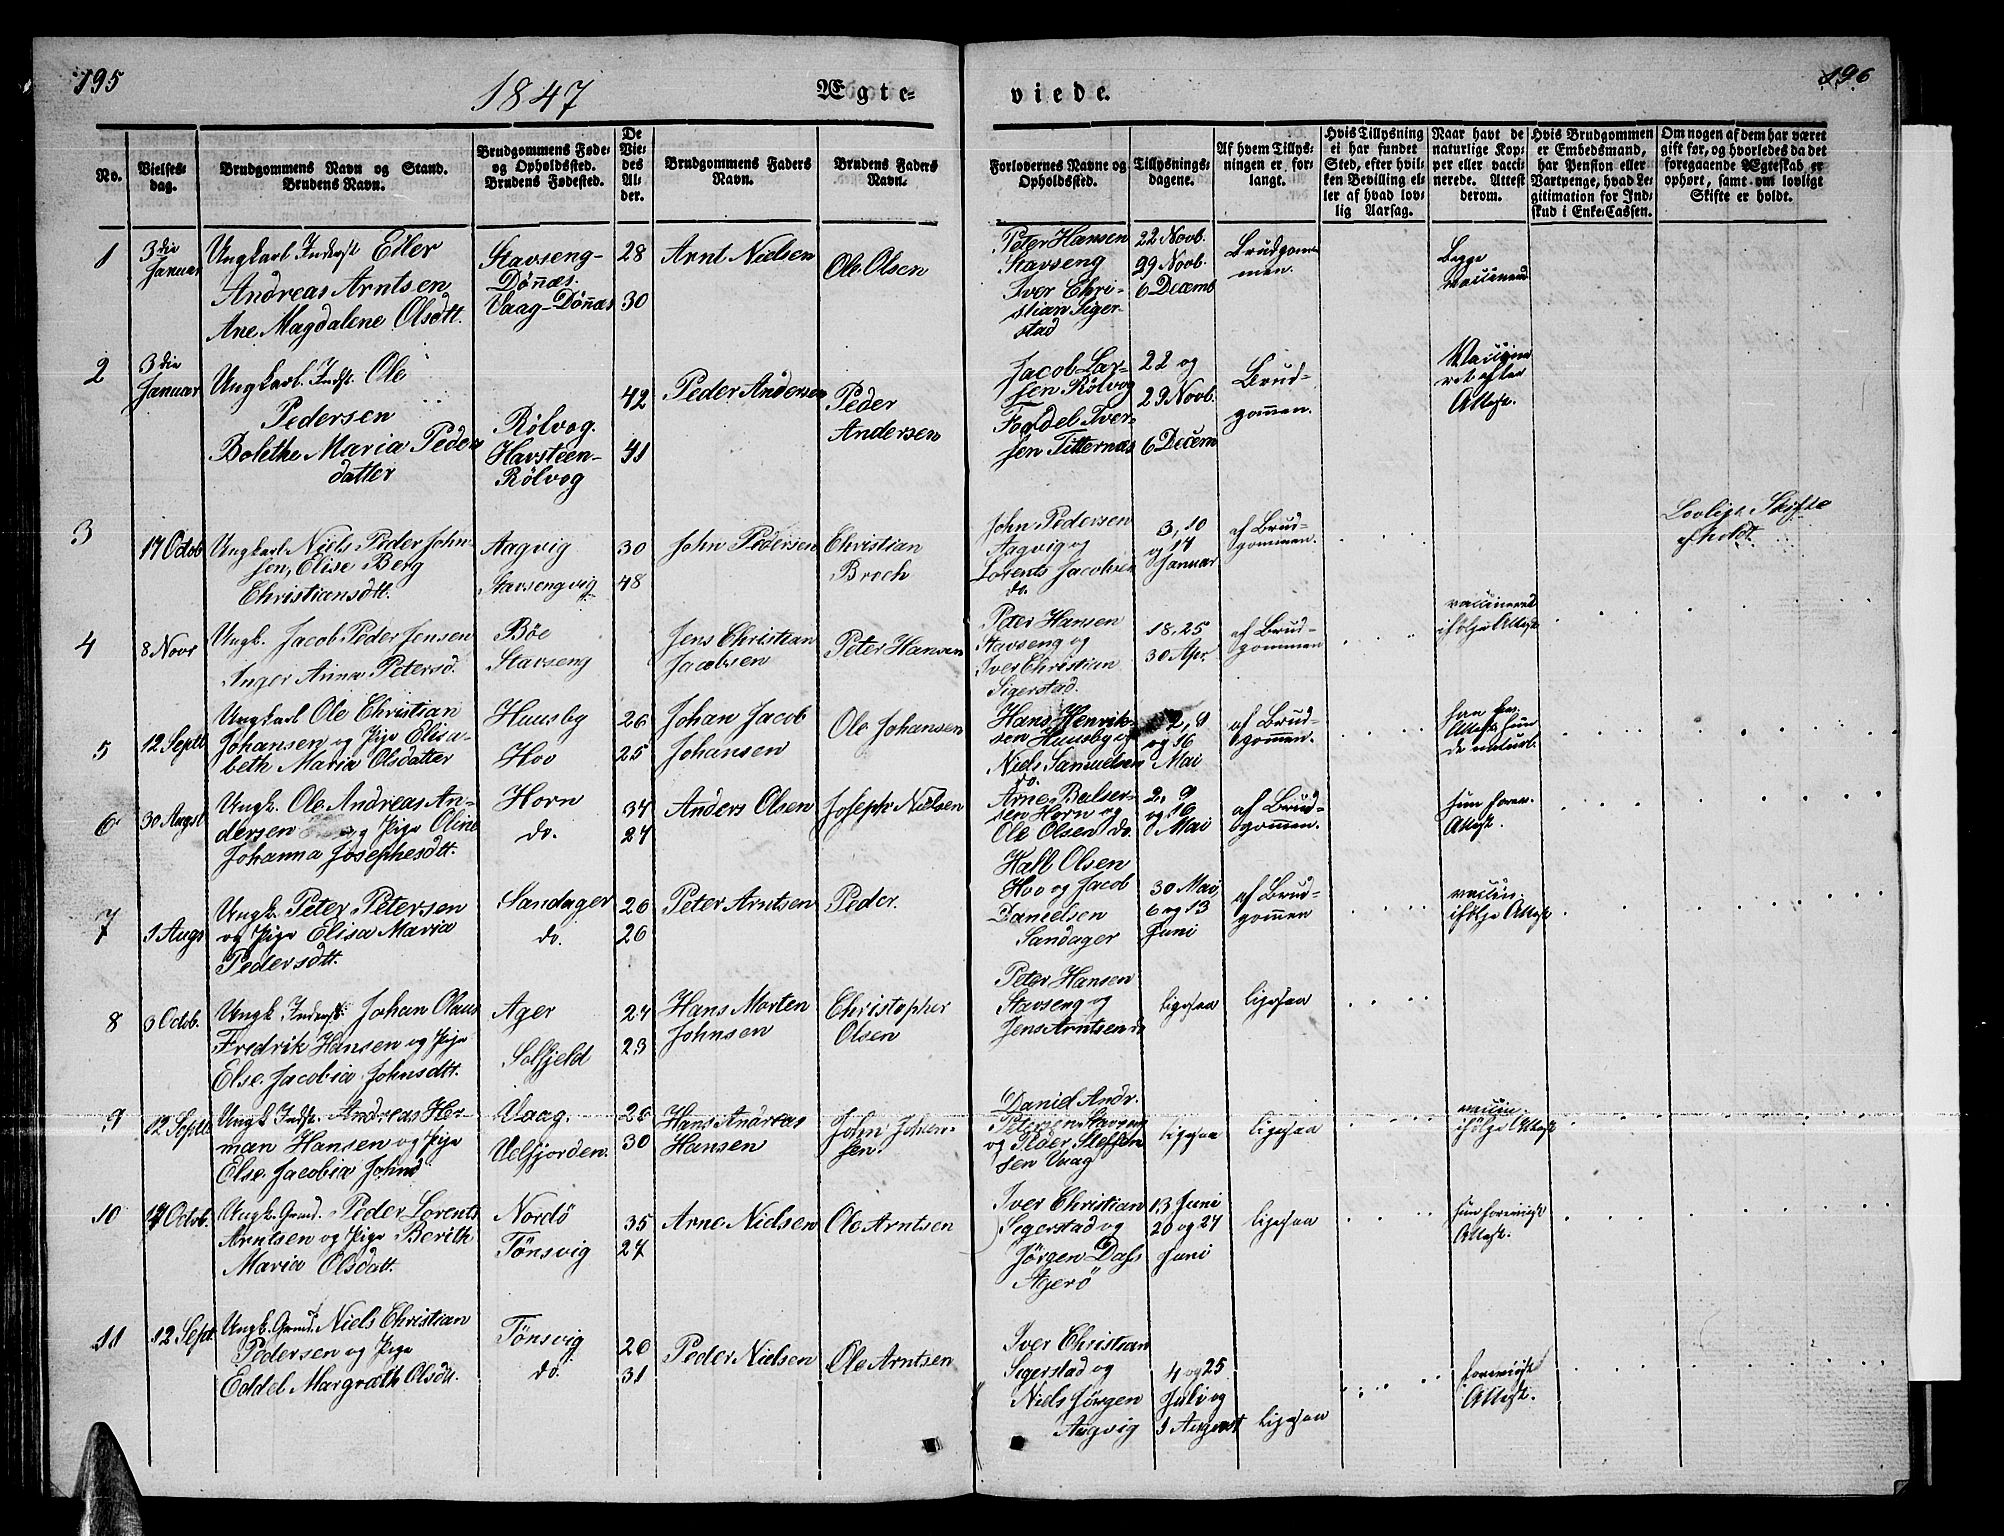 195
1847
Ægte-
viede.
196
No.
Vielses-
dag.
Brudgommens Navn og Stand.
Brudens Navn.
Brudgommens Føde-
og Opholdssted.
Brudens Fødested.
De
Vie-
des
Al-
der.
Brudgommens Faders
Navn.
Brudens Faders
Navn.
Forlovernes Navne og
Opholdssted.
Tillysnings-
dagene.
Af hvem Tillys-
ningen er for-
langt.
Hvis Tillysning
ei har fundet
Sted, efter hvil-
ken Bevilling el-
ler af hvad lov-
lig Aarsag.
Naar havt de
naturlige Kop-
per eller vacci-
nerede. Attest
derom.
Hvis Brudgommen
er Embedsmand,
har Pension eller
Vartpenge, hvad Le-
gitimation for Ind-
skud i Enke-Cassen.
Om nogen af dem har været
gift før, og hvorledes da det
foregaaende Ægteskab er
ophørt, samt om lovligt
Skifte er holdt.
1
3die
Januar
Ungkarl Inderst Eiler
Andreas Arntsen
Ane Magdalene Olsdtt.
Stavseng-
Dönnæs.
Vaag-Dönnæs
28
30
Arnt Nielsen
Ole Olsen
Peter Hansen
Stavseng
Iver Chri-
stian Siger-
stad
22 Novb.
29 Novb.
6 Decemb
Brudgom-
men.
Begge
vaccinered
2
3die
Januar
Ungkarl. Indst. Ole
Pedersen
Bolethe Maria Peders
datter
Rølvog.
Havsteen-
Rølvog
42
41
Peder Andersen
Peder
Andersen
Jacob Lar-
sen Rølvog
Fordel Iver-
sen Titternæs
22 og
29 Novb.
6 Decem
Brud-
gommen.
Vaccine
ret efter
Attest.
3
17 Octob
Ungkarl Niels Peder John-
sen, Elise Berg
Christiansdtt.
Aagvig
Stavsengvig
30
48
John Pedersen
Christian
Broch
John Pedersen
Aagvig og
Lorents Jacobsen
do.
3, 10
og 17
Januar
af Brud-
gommen.
Lovligt Skifte
holdt
4
8 Novr
Ungk. Jacob Peder Jensen
Inger Anna Petersd.
Böe
Stavseng
Jens Christian
Jacobsen
Peter Hansen
Peter Hansen
Stavseng og
Iver Christian
Sigerstad.
18, 25
30 Apr.
af Brud-
gommen
vaccinered
ifølge Attest
5
12 Septb
Ungkarl Ole Christian
Johansen og Pige Elisa-
beth Maria Olsdatter
Huusby
Hov
26
25
Johan Jacob
Johansen
Ole Johansen
Hans Henrik-
sen Huusby og
Niels Samuelsen
do.
2, 9
og 16
Mai
af Brud-
gommen.
han
Attest, hun
de naturl.
6
30 Augst
Ungk. Ole Andreas An-
dersen og Pige Oline
Johanna Josephesdtt.
Horn
do.
34
27
Anders Olsen
Joseph Nielsen
Arne Balser-
sen Horn og
Ole Olsen do.
2, 9
og 16
Mai
af Brud-
gommen.
hun forev.
Attest.
7
1 Augs
Ungk. Peter Petersen
og Pige Elisa Maria
Pedersdtt.
Sandager
do.
26
26
Peter Arntsen
Peder.
Hall Olsen
Hov og Jacob
Danielsen
Sandager
30 Mai
6 og 13
Juni
af Brud-
gommen
vaccin.
ifölge Attest
8
3 Octob.
Ungk Inderst. Johan Olaus
Fredrik Hansen og Pige
Else Jacobia Johnsdtt.
Ager
Solfjeld
24
23
Hans Morten
Johnsen
Christopher
Olsen
Peter Hansen
Stavseng og
Jens Arntsen do
ligesaa
ligesaa
9
12 Septb
Ungk Indst. Andreas Her-
man Hansen og Pige
Else Jacobia Johnsd.
Vaag.
Velfjorden.
26
30
Hans Andreas
Hansen
John Johan-
sen.
Daniel Andr.
Petersen Stavseng
og Peder Steffen
sen Vaag
ligesaa
ligesaa
vaccin.
ifölge Attest
10
17 Octob.
Ungk. Grmd. Peder Lorents
Arntsen og Pige Berith
Maria Olsdatt.
Nordö
Tönsvig
35
27
Arne Nielsen
Ole Arntsen
Iver Christian
Sigerstad og
Jörgen Dass
Agerö
13 Juni
20 og 27
Juni
ligesaa
hun foreviist
Attest.
11
12 Sept.
Ungk. Grmd. Niels Christian
Pedersen og Pige
Eddel Margræth Olsdtt.
Tönsvig
do.
26
31
Peder Nielsen
Ole Arntsen
Iver Christian
Sigerstad og
Niels Jörgen
Aagvig
4 og 25
Juli og
1 August
ligesaa
foreviist
Attest.